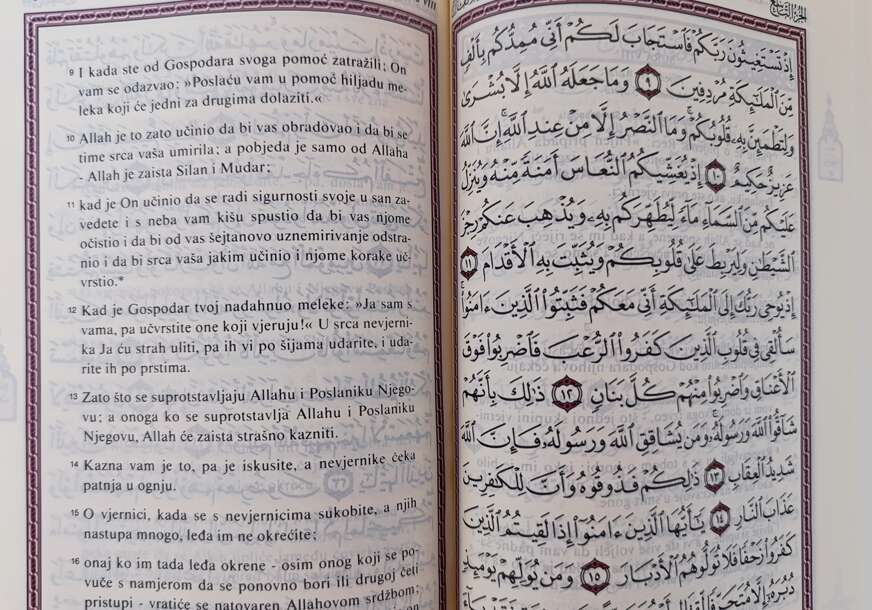 VIII
9 I kada ste od Gospodara svoga pomoć zatražili; On
vam se odazvao: »Poslaću vam u pomoć hiljadu me-
leka koji će jedni za drugima dolaziti.«
10 Allah je to zato učinio da bi vas obradovao i da bi se
time srca vaša umirila; a pobjeda je samo od Allaha
- Allah je zaista Silan i Mudar;
11 kad je On učinio da se radi sigurnosti svoje u san za-
vedete i s neba vam kišu spustio da bi vas njome
očistio i da bi od vas šejtanovo uznemirivanje odstra-
nio i da bi srca vaša jakim učinio i njome korake uč-
vrstio.*
12 Kad je Gospodar tvoj nadahnuo meleke: »Ja sam s
vama, pa učvrstite one koji vjeruju!« U srca nevjerni-
ka Ja ću strah uliti, pa ih vi po šijama udarite, i uda-
rite ih po prstima.
13 Zato što se suprotstavljaju Allahu i Poslaniku Njego-
vu; a onoga ko se suprotstavlja Allahu i Poslaniku
Njegovu, Allah će zaista strašno kazniti.
14 Kazna vam je to, pa je iskusite, a nevjernike čeka
patnja u ognju.
15 O vjernici, kada se s nevjernicima sukobite, a njih
nastupa mnogo, leđa im ne okrećite;
16 onaj ko im tada leđa okrene - osim onog koji se po-
vuče s namjerom da se ponovno bori ili drugoj četi
pristupi - vratiće se natovaren Allahovom srdžbom;
إِذْ تَسْتَغِيثُونَ رَبَّكُمْ فَٱسْتَجَابَ لَكُمْ أَنِّى مُمِدُّكُم بِأَلْفٍ
مِّنَ ٱلْمَلَٰٓئِكَةِ مُرْدِفِينَ ٩ وَمَا جَعَلَهُ ٱللَّهُ إِلَّا بُشْرَىٰ
وَلِتَطْمَئِنَّ بِهِۦ قُلُوبُكُمْ ۚ وَمَا ٱلنَّصْرُ إِلَّا مِنْ عِندِ ٱللَّهِ ۚ إِنَّ ٱللَّهَ
عَزِيزٌ حَكِيمٌ ١٠ إِذْ يُغَشِّيكُمُ ٱلنُّعَاسَ أَمَنَةً مِّنْهُ وَيُنَزِّلُ
عَلَيْكُم مِّنَ ٱلسَّمَآءِ مَآءً لِّيُطَهِّرَكُم بِهِۦ وَيُذْهِبَ عَنكُمْ رِجْزَ
ٱلشَّيْطَٰنِ وَلِيَرْبِطَ عَلَىٰ قُلُوبِكُمْ وَيُثَبِّتَ بِهِ ٱلْأَقْدَامَ ١١
إِذْ يُوحِى رَبُّكَ إِلَى ٱلْمَلَٰٓئِكَةِ أَنِّى مَعَكُمْ فَثَبِّتُوا۟ ٱلَّذِينَ ءَامَنُوا۟ ۚ
سَأُلْقِى فِى قُلُوبِ ٱلَّذِينَ كَفَرُوا۟ ٱلرُّعْبَ فَٱضْرِبُوا۟ فَوْقَ
ٱلْأَعْنَاقِ وَٱضْرِبُوا۟ مِنْهُمْ كُلَّ بَنَانٍ ١٢ ذَٰلِكَ بِأَنَّهُمْ
شَآقُّوا۟ ٱللَّهَ وَرَسُولَهُۥ ۚ وَمَن يُشَاقِقِ ٱللَّهَ وَرَسُولَهُۥ فَإِنَّ ٱللَّهَ
شَدِيدُ ٱلْعِقَابِ ١٣ ذَٰلِكُمْ فَذُوقُوهُ وَأَنَّ لِلْكَٰفِرِينَ
عَذَابَ ٱلنَّارِ ١٤ يَٰٓأَيُّهَا ٱلَّذِينَ ءَامَنُوٓا۟ إِذَا لَقِيتُمُ ٱلَّذِينَ
كَفَرُوا۟ زَحْفًا فَلَا تُوَلُّوهُمُ ٱلْأَدْبَارَ ١٥ وَمَن يُوَلِّهِمْ يَوْمَئِذٍ
دُبُرَهُۥٓ إِلَّا مُتَحَرِّفًا